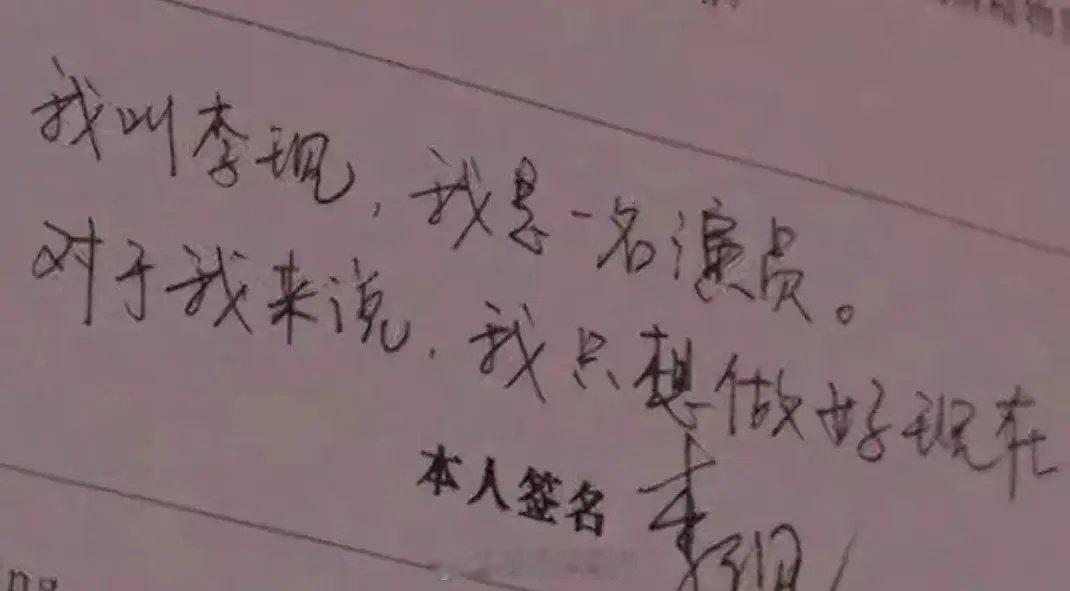 我叫李现，我是一名演员。
对于我来说，我只想做好现在
本人签名 李现